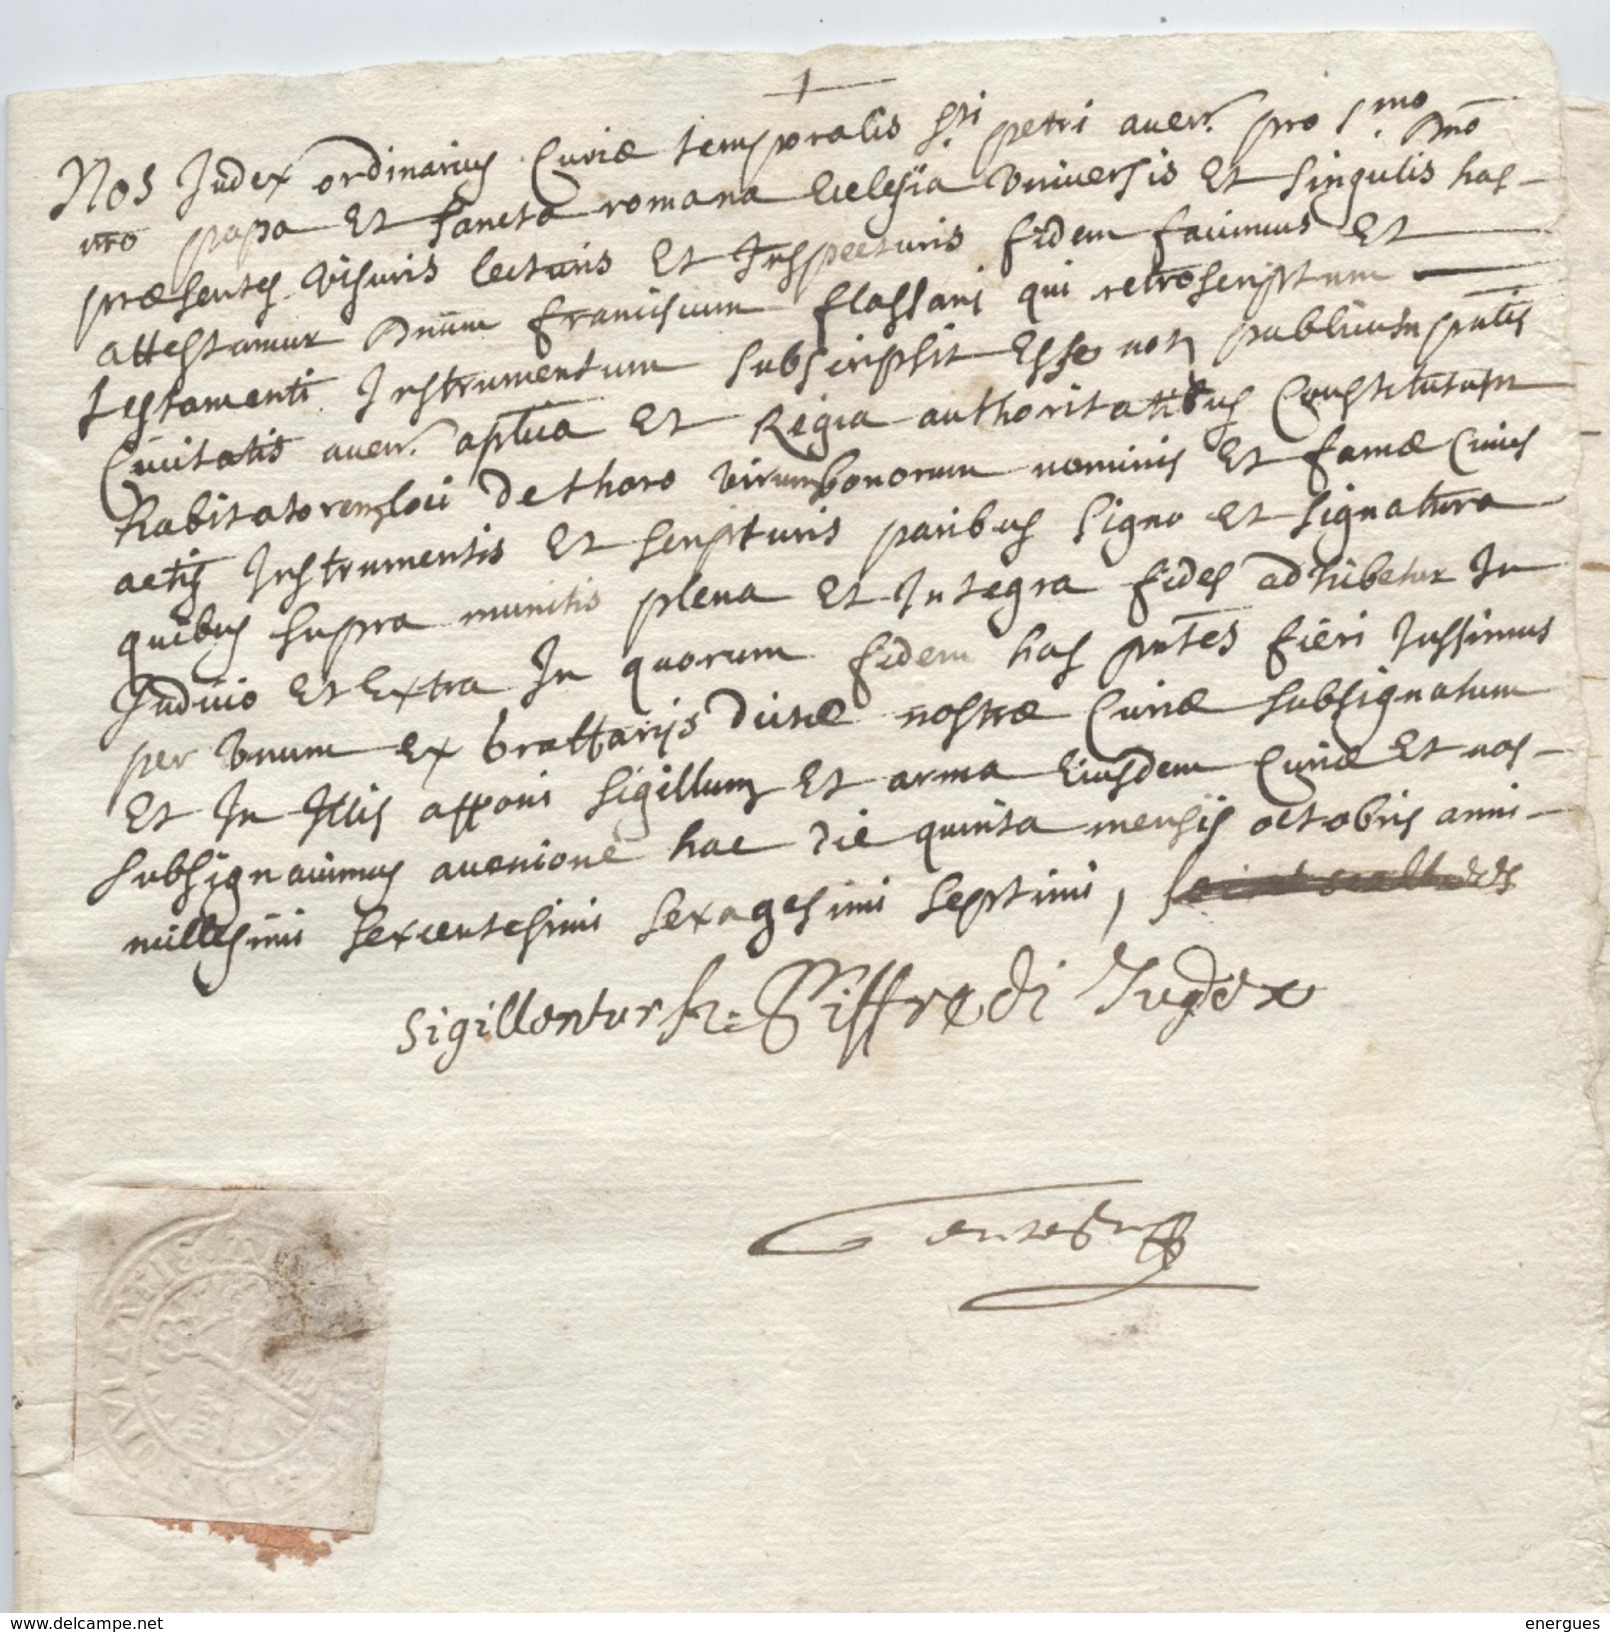 Nos Judex ordinarius Curiæ temporalis Sti petri aven. pro smo dno
nro papa Et sancta romana Ecclesia Universis Et singulis has-
præsentes visuris lecturis Et Inspecturis fidem facimus Et
attestamur dnum franciscum flassani qui retroscriptum
testamenti Instrumentum subscripsit Esse not publicum pntis
Civitatis aven. aplica Et Regia authoritatibus Constitutum
habitatorem loci de thoro virum bonorum nominis Et famæ Cuius
actis Instrumentis Et scripturis paribus signo et signatura
quibus supra munitis plena Et Integra fides adhibetur In
Judicio Et Extra In quorum fidem has pntes fieri Jussimus
per Unum ex dictæ nostræ Curiæ subsignatum
Et In Illis apponi sigillum Et arma Eiusdem Curiæ Et nos-
subsignavimus avenione hac die quinta mensis octobris anni-
millesimi sexcentesimi sexagesimi septimi,
Sigillentur fr: Siffredi Judex
www.delcampe.net
energues